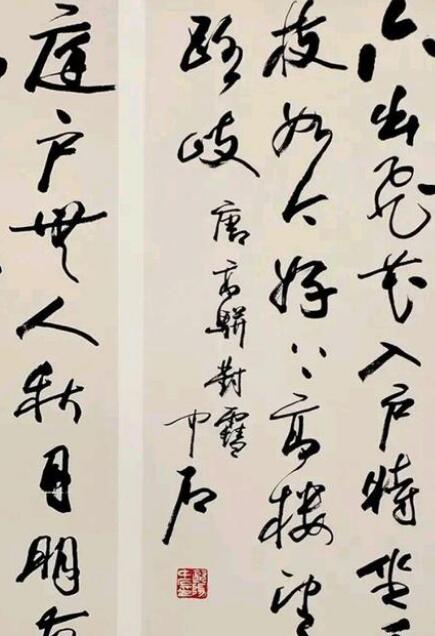 六出飛花入户時坐
枝如今好上高樓望
路岐
唐高駢對雪
中石
庭户無人秋月明